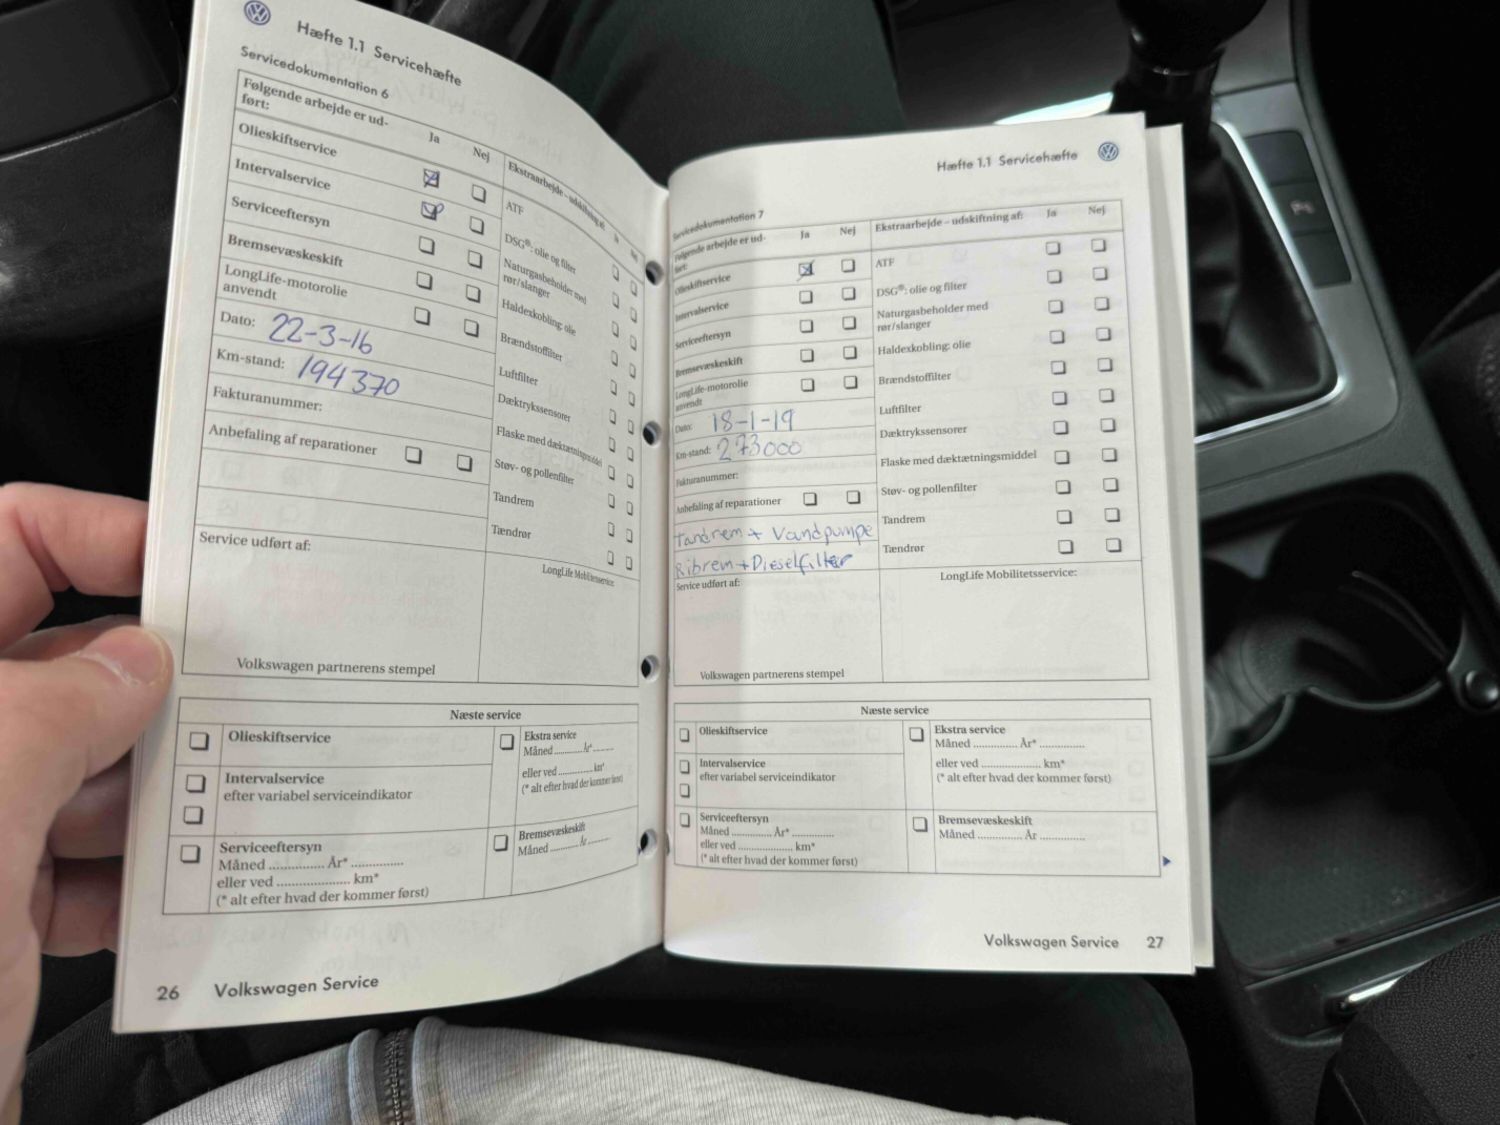 Hæfte 1.1 Servicehæfte
Servicedokumentation 6
Følgende arbejde er ud-
ført:
Ja
Nej
Olieskiftservice
Intervalservice
Serviceeftersyn
Bremsevæskeskift
LongLife-motorolie
anvendt
Dato: 22-3-16
Km-stand: 194370
Fakturanummer:
Anbefaling af reparationer
Service udført af:
Volkswagen partnerens stempel
Ekstraarbejde – udskiftning af:
Ja
Nej
ATF
DSG®: olie og filter
Naturgasbeholder med
rør/slanger
Haldexkobling: olie
Brændstoffilter
Luftfilter
Dæktrykssensorer
Flaske med dæktætningsmiddel
Støv- og pollenfilter
Tandrem
Tændrør
LongLife Mobilitetsservice:
Næste service
Olieskiftservice
Intervalservice
efter variabel serviceindikator
Serviceeftersyn
Måned .............. År* .............
eller ved .................... km*
(* alt efter hvad der kommer først)
Ekstra service
Måned ........... År* ........
eller ved .............. km*
(* alt efter hvad der kommer først)
Bremsevæskeskift
Måned ........... År ........
26 Volkswagen Service
Hæfte 1.1 Servicehæfte
Servicedokumentation 7
Følgende arbejde er ud-
ført:
Ja
Nej
Olieskiftservice
Intervalservice
Serviceeftersyn
Bremsevæskeskift
LongLife-motorolie
anvendt
Dato: 18-1-19
Km-stand: 273000
Fakturanummer:
Anbefaling af reparationer
Tandrem + Vandpumpe
Ribrem + Dieselfilter
Service udført af:
Volkswagen partnerens stempel
Ekstraarbejde – udskiftning af:
Ja
Nej
ATF
DSG®: olie og filter
Naturgasbeholder med
rør/slanger
Haldexkobling: olie
Brændstoffilter
Luftfilter
Dæktrykssensorer
Flaske med dæktætningsmiddel
Støv- og pollenfilter
Tandrem
Tændrør
LongLife Mobilitetsservice:
Næste service
Olieskiftservice
Intervalservice
efter variabel serviceindikator
Serviceeftersyn
Måned ............ År* .............
eller ved ................. km*
(* alt efter hvad der kommer først)
Ekstra service
Måned ............. År* .............
eller ved .................. km*
(* alt efter hvad der kommer først)
Bremsevæskeskift
Måned ............. År .............
Volkswagen Service 27